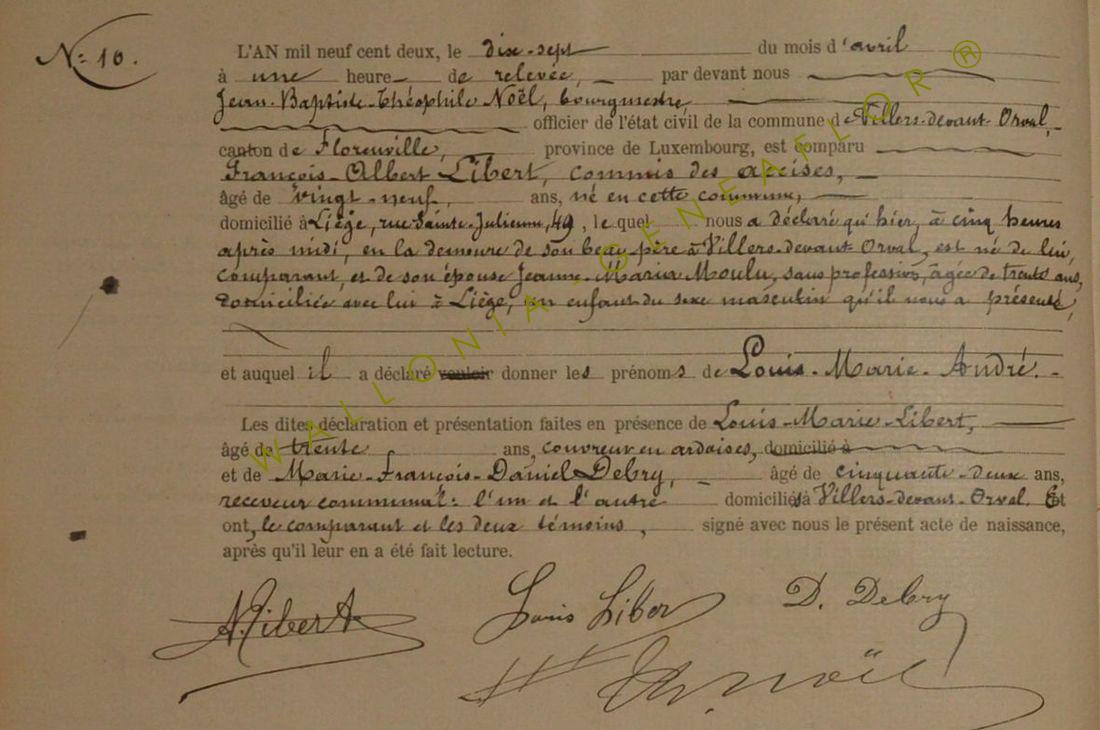 N: 10.
L'AN mil neuf cent deux, le dix-sept du mois d'avril
à une heure de relevée, par devant nous
Jean-Baptiste-Théophile Noël, bourgmestre
officier de l'état civil de la commune de Villers-devant-Orval,
canton de Florenville, province de Luxembourg, est comparu
François-Albert Libert, commis des accises,
âgé de vingt-neuf ans, né en cette commune,
domicilié à Liège, rue Sainte-Julienne, 49, le quel nous a déclaré qu'hier, à cinq heures
après midi, en la demeure de son beau-père à Villers-devant-Orval, est né de lui,
comparant, et de son épouse Jeanne-Maria Moulu, sans profession, âgée de trente ans,
domiciliée avec lui à Liège, un enfant du sexe masculin qu'il nous a présenté,
et auquel il a déclaré vouloir donner les prénoms de Louis-Marie-André.
Les dites déclaration et présentation faites en présence de Louis-Marie-Libert,
âgé de trente ans, couvreur en ardoises, domicilié à
et de Marie-François-Daniel Debry, âgé de cinquante-deux ans,
receveur communal: l'un et l'autre domiciliés à Villers-devant-Orval. Et
ont, le comparant et les deux témoins, signé avec nous le présent acte de naissance,
après qu'il leur en a été fait lecture.
A Libert Louis Liber D. Debry
Th. Noël
WALLONIA - GENEAFLOR ®